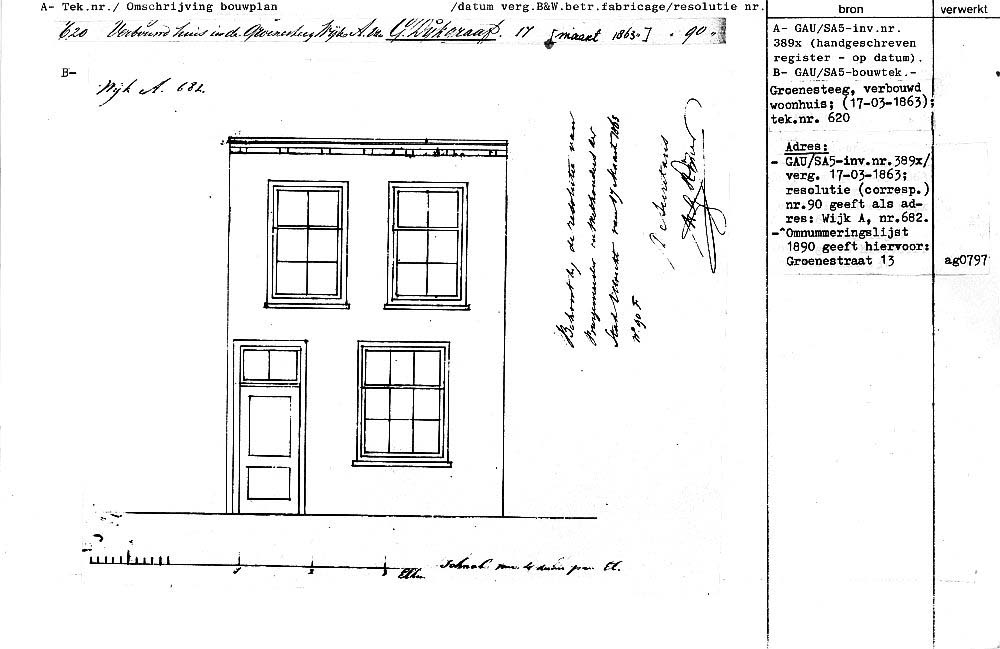 A- Tek.nr./ Omschrijving bouwplan /datum verg.B&W.betr.fabricage/resolutie nr.
bron
verwerkt
620 Verbouwd huis in de Groenesteeg Wijk A. Van G. Dijkgraaf. 17 [maart 1863.] . 90.
B-
Wijk A. 682.
Behoort bij de resolutie van
Burgemeester en Wethouders der
Stad Utrecht van 17 Maart 1863
N° 90 F
De Secretaris
1 2 3 Ellen
Schaal van 4 duim per El.
A- GAU/SA5-inv.nr.
389x (handgeschreven
register - op datum).
B- GAU/SA5-bouwtek.-
Groenesteeg, verbouwd
woonhuis; (17-03-1863);
tek.nr. 620
Adres:
- GAU/SA5-inv.nr.389x/
verg. 17-03-1863;
resolutie (corresp.)
nr.90 geeft als ad-
res: Wijk A, nr.682.
- Omnummeringslijst
1890 geeft hiervoor:
Groenestraat 13
ag0797